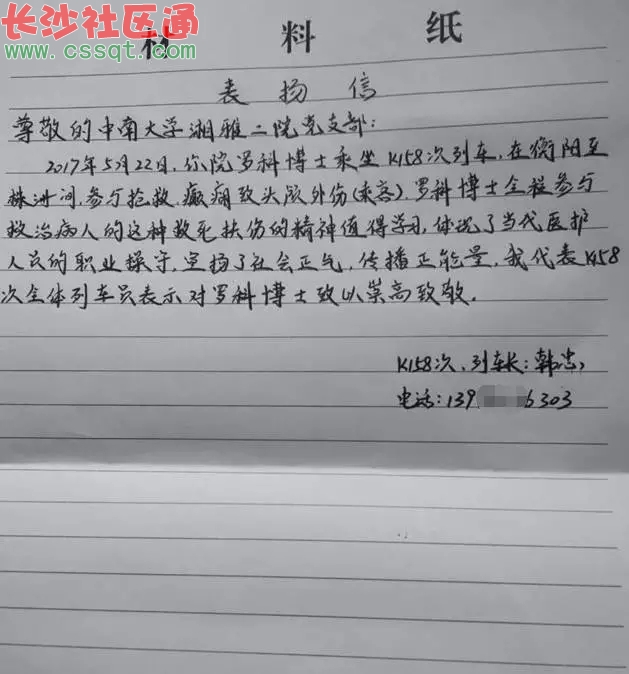 长沙社区通
www.cssqt.com
材 料 纸
表扬信
尊敬的中南大学湘雅二院党支部:
2017年5月22日,你院罗科博士乘坐K158次列车,在衡阳至
株洲间,参与抢救,癫痫致头皮外伤(乘客),罗科博士全程参与
救治病人的这种救死扶伤的精神值得学习,体现了当代医护
人员的职业操守,宣扬了社会正气,传播正能量,我代表K158
次全体列车员表示对罗科博士致以崇高致敬。
K158次,列车长:韩忠
电话:139 6303